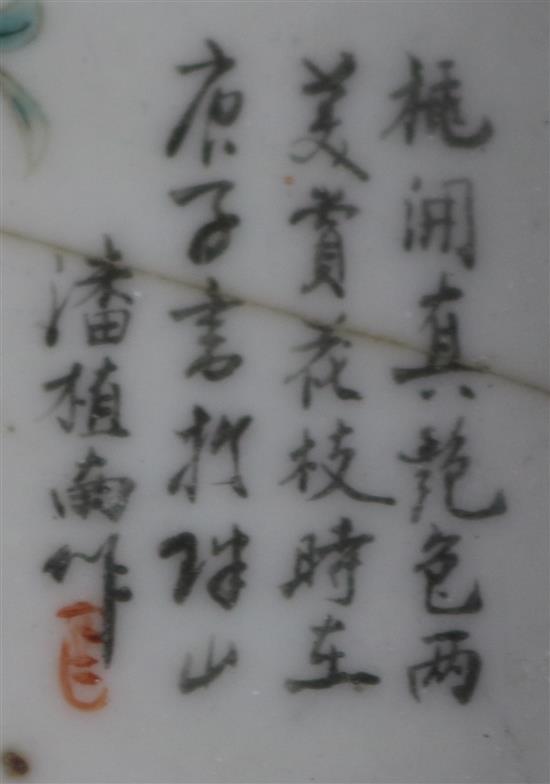 桃開真艷色两
美賞花枝時在
庚子書於珠山
潘植南作